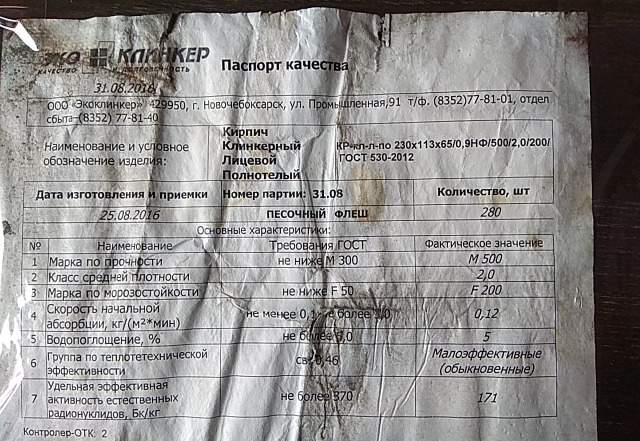 ЭКО КЛИНКЕР
КАЧЕСТВО И ДОЛГОВЕЧНОСТЬ
Паспорт качества
31.08.2016
ООО «Экоклинкер» 429950, г. Новочебоксарск, ул. Промышленная,91 т/ф. (8352)77-81-01, отдел
сбыта (8352) 77-81-40
Наименование и условное
обозначение изделия:
Кирпич
Клинкерный
Лицевой
Полнотелый
КР-кл-л-по 230х113х65/0,9НФ/500/2,0/200/
ГОСТ 530-2012
Дата изготовления и приемки Номер партии: 31.08 Количество, шт
25.08.2016 ПЕСОЧНЫЙ ФЛЕШ 280
Основные характеристики:
№ Наименование Требования ГОСТ Фактическое значение
1 Марка по прочности не ниже М 300 М 500
2 Класс средней плотности 2,0
3 Марка по морозостойкости не ниже F 50 F 200
4 Скорость начальной
абсорбции, кг/(м²*мин) не менее 0,1 не более 0,12
5 Водопоглощение, % не более 5
6 Группа по теплотехнической
эффективности св. 0,46 Малоэффективные
(обыкновенные)
7 Удельная эффективная
активность естественных
радионуклидов, Бк/кг не более 370 171
Контролер-ОТК: 2